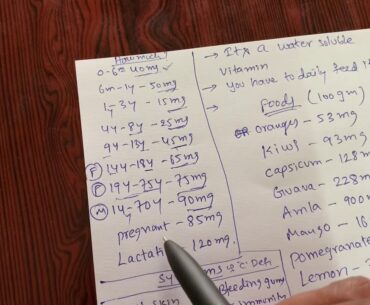 How much
0-6m 40mg ✓
6m-1y - 50mg
1-3y - 15mg
4y-8y - 25mg
9y-13y - 45mg
(F) 14y-18y - 65mg
(F) 19y-75y - 75mg
(M) 14-70y - 90mg
pregnant - 85mg
120mg.
→ It's a water soluble
vitamin
→ you have to daily feed
→ Foods (100gm)
oranges - 53mg
Kiwi - 93mg
Capsicum - 128m
Guava - 228m
Amla - 900
Mango - 16
Pomegranate
Lemon -
"C" Defi
Bleeding gums
skin
immunity